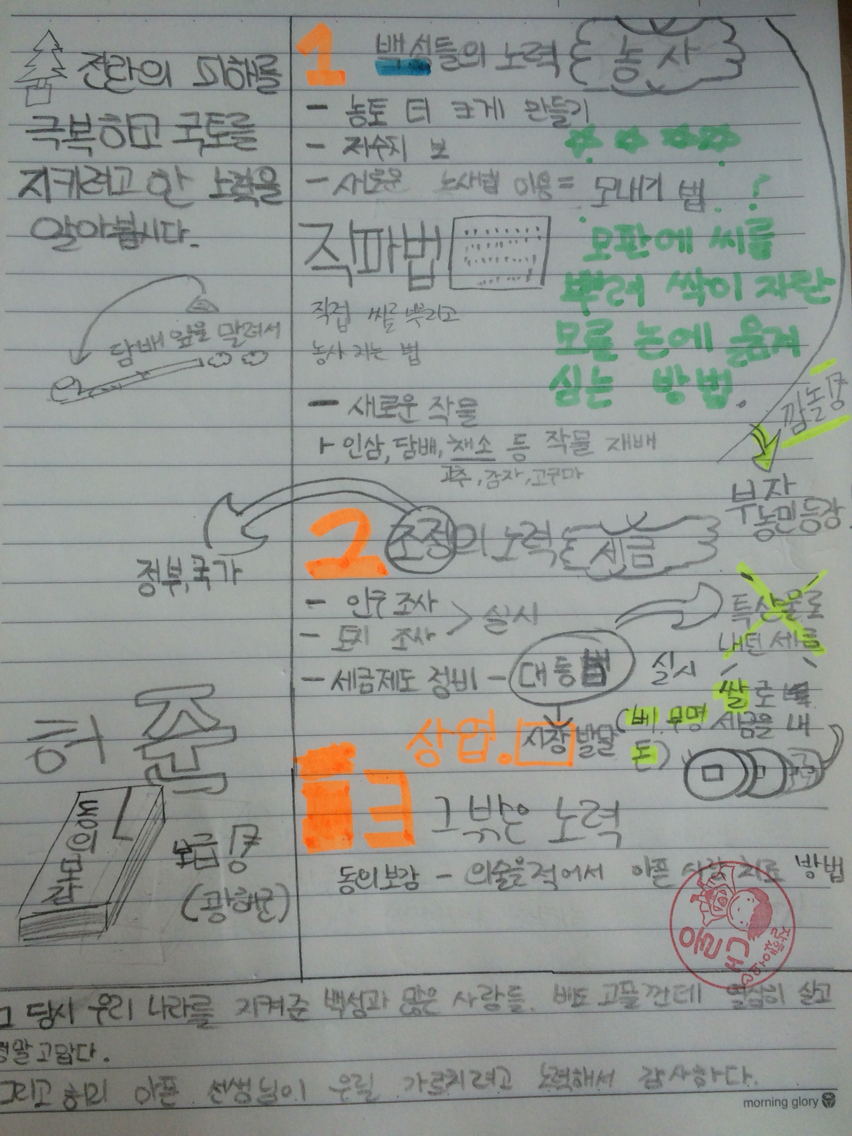 전란의 피해를
극복하고 국토를
지키려고 한 노력을
알아봅시다.
담배 잎을 말려서
정부, 국가
허준
동의보감
보급!
(광해군)
1 백성들의 노력 농사
- 농토 더 크게 만들기
- 저수지 보
- 새로운 농사법 이용 = 모내기 법 ?
직파법
직접 씨를 뿌리고
농사 지는 법
모판에 씨를
뿌려 싹이 자란
모를 논에 옮겨
심는 방법.
- 새로운 작물
인삼, 담배, 채소 등 작물 재배
고추, 감자, 고구마
부자
농민 등장
2 조정의 노력 세금
- 인구 조사
- 토지 조사 > 실시
- 세금제도 정비 - 대동법 실시
특산물로
내던 세금
쌀로
(베, 무명 세금을 내
돈)
상업. 시장 발달
3 그 밖은 노력
동의보감 - 의술을 적어서 아픈 사람 치료 방법
잘했어요
그 당시 우리 나라를 지켜준 백성과 많은 사람들. 배도 고플껀데 열심히 살고
정말 고맙다.
그리고 허리 아픈 선생님이 우릴 가르키려고 노력해서 감사하다.
morning glory